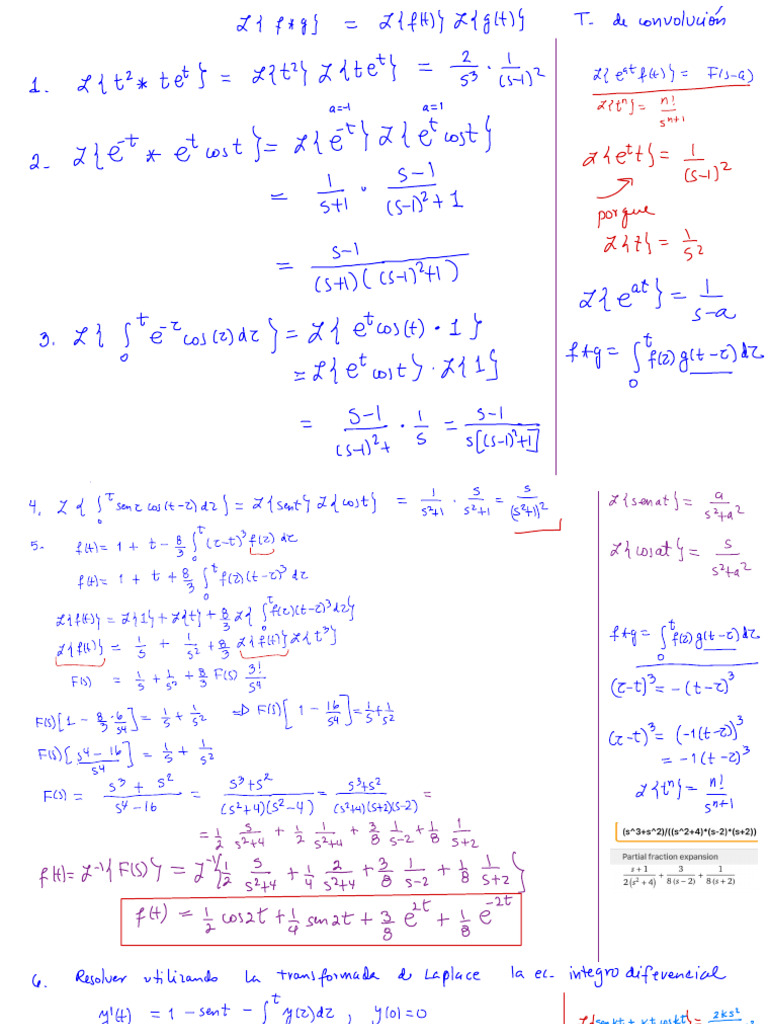 ℒ{f*g} = ℒ{f(t)} ℒ{g(t)}
T. de convolución
1. ℒ{t² * te^t} = ℒ{t²} ℒ{te^t} = 2/s³ · 1/(s-1)²
ℒ{e^{at} f(t)} = F(s-a)
ℒ{t^n} = n!/s^{n+1}
a=-1 a=1
2. ℒ{e^{-t} * e^t cost} = ℒ{e^{-t}} ℒ{e^t cost}
= 1/(s+1) · (s-1)/((s-1)²+1)
= (s-1)/((s+1)((s-1)²+1))
ℒ{e^t t} = 1/(s-1)²
porque
ℒ{t} = 1/s²
ℒ{e^{at}} = 1/(s-a)
f*g = ∫₀^t f(τ) g(t-τ) dτ
3. ℒ{∫₀^t e^{-τ} cos(τ) dτ} = ℒ{e^t cos(t) · 1}
= ℒ{e^t cost} · ℒ{1}
= (s-1)/((s-1)²+ · 1/s = (s-1)/(s[(s-1)²+1])
4. ℒ{∫₀^t senτ cos(t-τ) dτ} = ℒ{sent} ℒ{cost} = 1/(s²+1) · s/(s²+1) = s/(s²+1)²
ℒ{senat} = a/(s²+a²)
ℒ{cosat} = s/(s²+a²)
5. f(t) = 1 + t - 8/3 ∫₀^t (τ-t)³ f(τ) dτ
f(t) = 1 + t + 8/3 ∫₀^t f(τ)(t-τ)³ dτ
ℒ{f(t)} = ℒ{1} + ℒ{t} + 8/3 ℒ{∫₀^t f(τ)(t-τ)³ dτ}
ℒ{f(t)} = 1/s + 1/s² + 8/3 ℒ{f(t)} ℒ{t³}
F(s) = 1/s + 1/s² + 8/3 F(s) 3!/s⁴
F(s)[1 - 8/3 · 6/s⁴] = 1/s + 1/s² ⇒ F(s)[1 - 16/s⁴] = 1/s + 1/s²
F(s)[(s⁴-16)/s⁴] = 1/s + 1/s²
F(s) = (s³+s²)/(s⁴-16) = (s³+s²)/((s²+4)(s²-4)) = (s³+s²)/((s²+4)(s+2)(s-2)) =
= 1/2 s/(s²+4) + 1/2 1/(s²+4) + 3/8 1/(s-2) + 1/8 1/(s+2)
f(t) = ℒ⁻¹{F(s)} = ℒ⁻¹{1/2 s/(s²+4) + 1/4 2/(s²+4) + 3/8 1/(s-2) + 1/8 1/(s+2)}
f(t) = 1/2 cos2t + 1/4 sen2t + 3/8 e^{2t} + 1/8 e^{-2t}
f*g = ∫₀^t f(τ) g(t-τ) dτ
(τ-t)³ = -(t-τ)³
(τ-t)³ = (-1(t-τ))³
= -1(t-τ)³
ℒ{t^n} = n!/s^{n+1}
(s^3+s^2)/((s^2+4)*(s-2)*(s+2))
Partial fraction expansion
(s+1)/(2(s²+4)) + 3/(8(s-2)) + 1/(8(s+2))
6. Resolver utilizando la transformada de Laplace la ec. integro diferencial
y'(t) = 1 - sent - ∫₀^t y(τ)dτ, y(0)=0